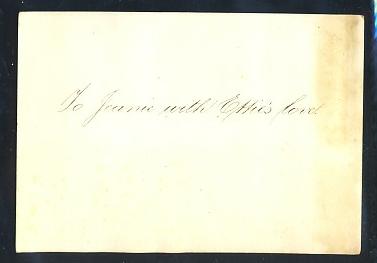 To Jennie with Effie's love